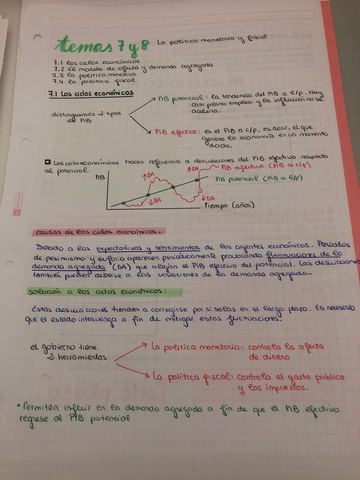 temas 7 y 8 La política monetaria y fiscal
7.1 Los ciclos económicos
7.2 El modelo de oferta y demanda agregada
7.3 La política monetaria
7.4 La política fiscal
7.1 Los ciclos económicos
PIB potencial: la tendencia del PIB a l/p. Hay
casi pleno empleo y la inflación no se
acelera.
distinguimos 2 tipos
de PIB
PIB efectivo: es el PIB a c/p, es decir, el que
genera la economía en un momento
dado.
Los ciclos económicos hacen referencia a desviaciones del PIB efectivo respecto
al potencial.
PIB
↑DA
↑DA
PIB efectivo (PIB a c/p)
PIB potencial (PIB a l/p)
↓DA
↓DA
Tiempo (años)
causas de los ciclos económicos:
Debido a las expectativas y sentimientos de los agentes económicos. Períodos
de pesimismo y euforia aparecen periódicamente provocando fluctuaciones de la
demanda agregada (DA) que alejan el PIB efectivo del potencial. Las desviaciones
también pueden deberse a las variaciones de la demanda agregada.
solución a los ciclos económicos:
Estas desviaciones tienden a corregirse por sí solas en el largo plazo. Es necesario
que el estado intervenga a fin de mitigar estas fluctuaciones.
el gobierno tiene
2 herramientas
La política monetaria: controla la oferta
de dinero
La política fiscal: controla el gasto público
y los impuestos.
*Permiten influir en la demanda agregada a fin de que el PIB efectivo
regrese al PIB potencial